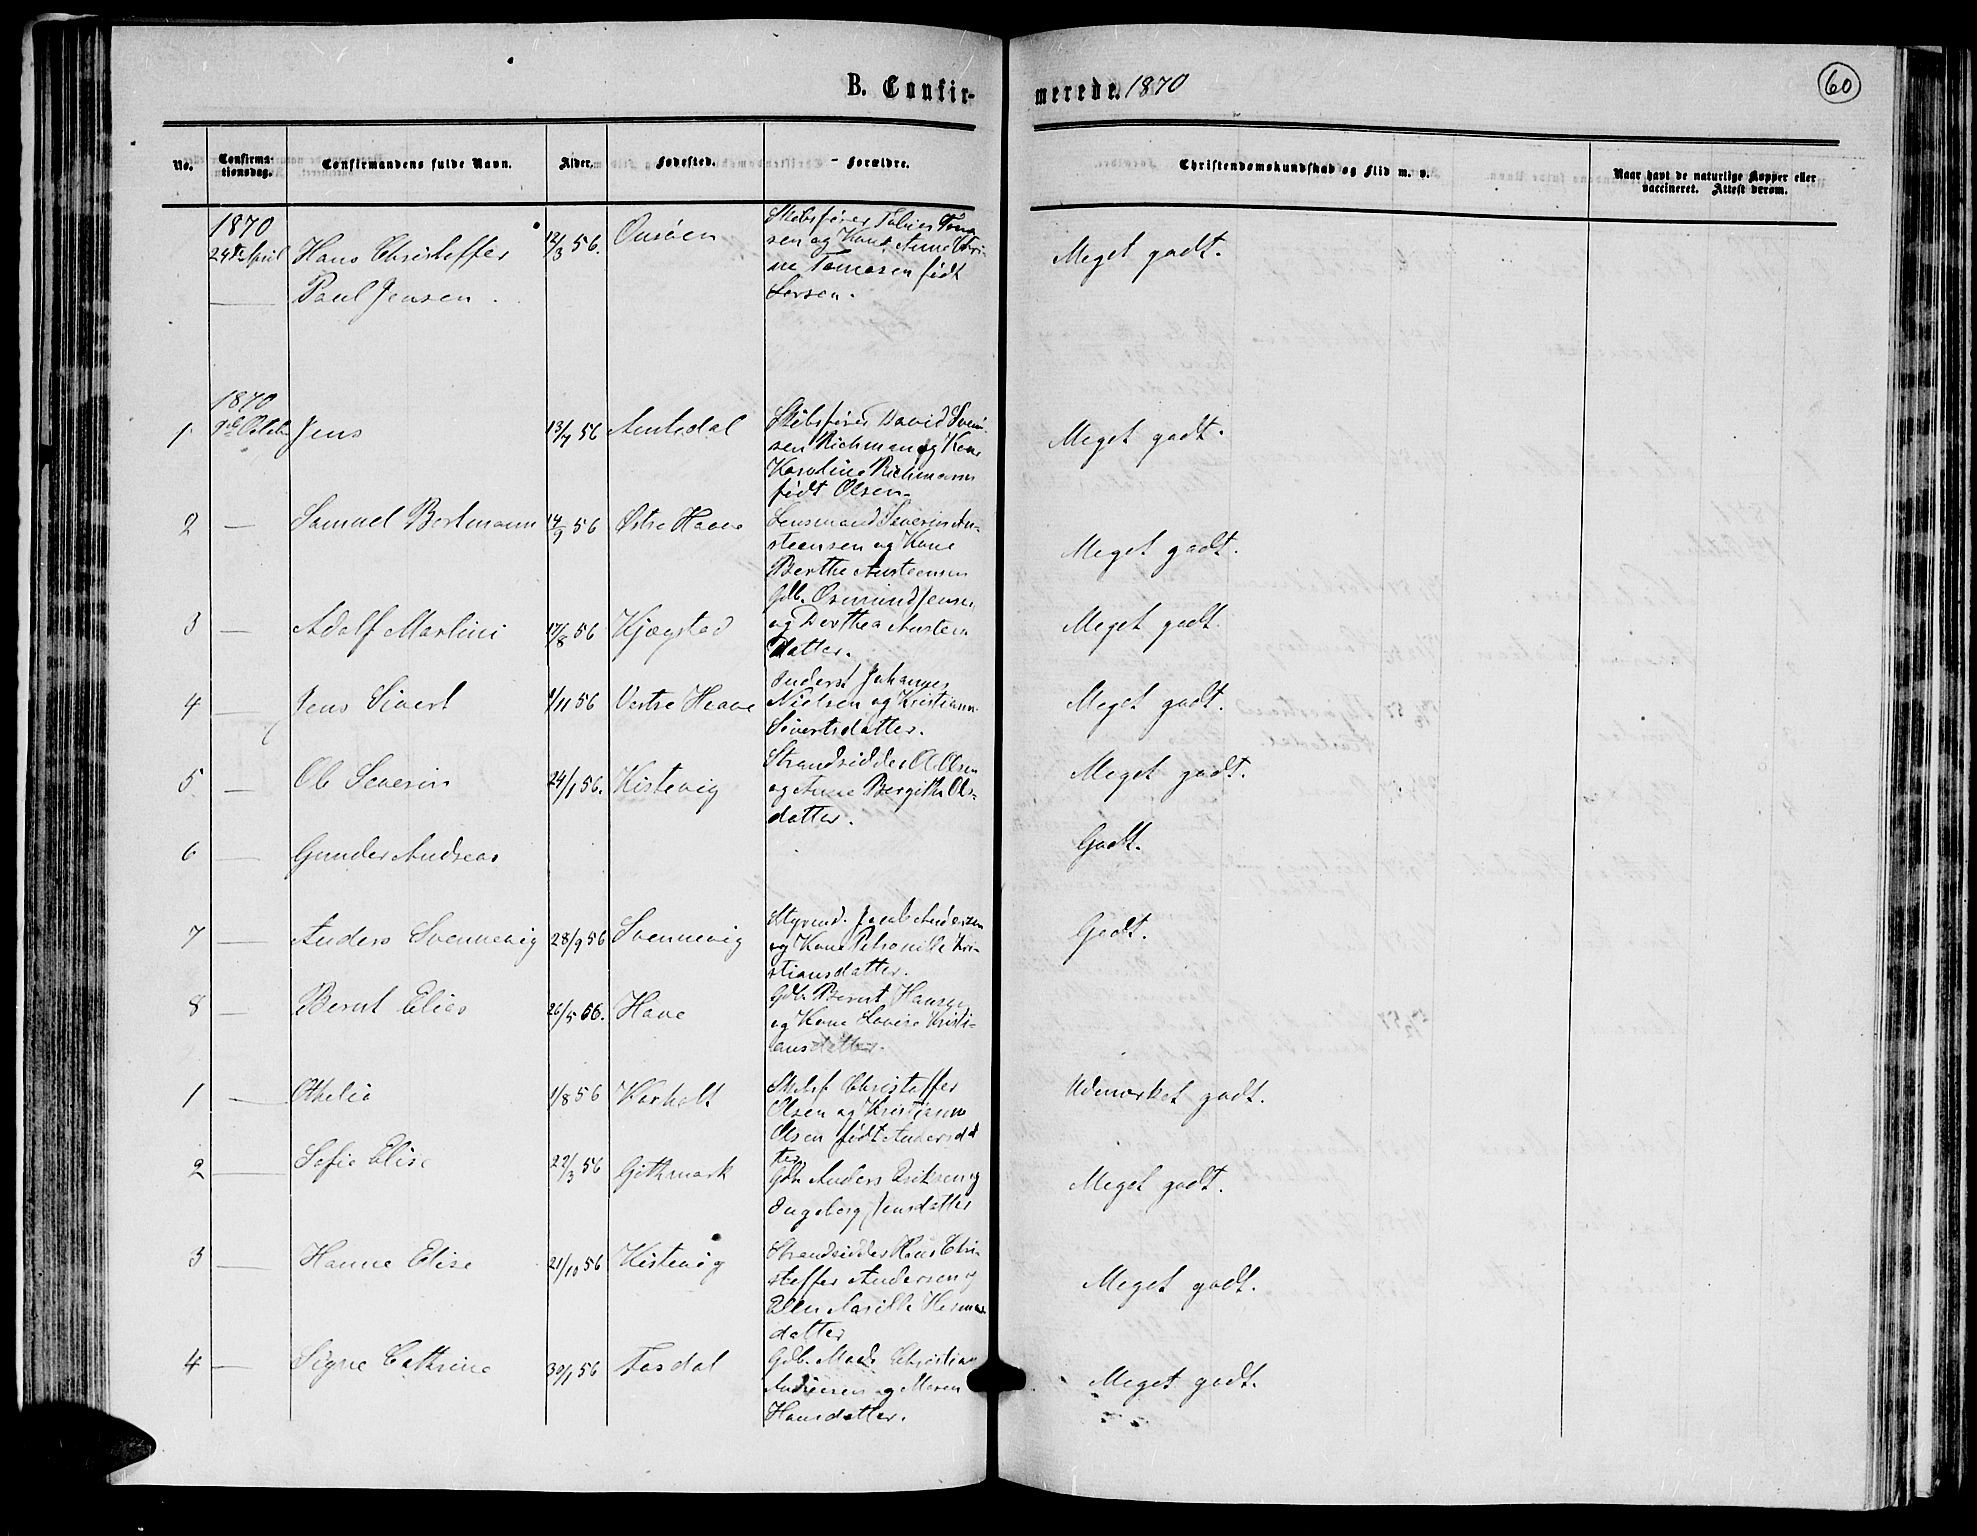 B. Confir-
merede. 1870
60
No.
Confirma-
tionsdag.
Confirmandens fulde Navn.
Alder.
Fødested.
Forældre.
Christendomskundskab og Flid m. v.
Naar havt de naturlige Kopper eller
vaccineret. Attest derom.
1870
24de April Hans Christoffer 12/3 56. Skibsfører Tobias Toma
Paul Jensen.
sen og Kone Anne Chri-
ne Tomasen født
Larsen.
Meget godt.
1870
1 9de Octob Jens 13/7 56 Amtedal Skibsfører David Svend-
sen Richman og Kone
Karoline Richmann
født Olsen.
Meget godt.
2 — Samuel Bertmann 14/9 56 Østre Haave Lensmand Severin Au-
steensen og Kone
Berthe Austeensen
Meget godt.
3 — Adolf Martini 17/8 56 Kjægstad Gdb. Osmund Jensen
og Dorthea Austen
datter.
Meget godt.
4 — Jens Sivert /11 56 Vestre Haave Inderst Johannes
Nielsen og Kristiane
Sivertsdatter.
Meget godt.
5 — Ole Severin 24/1 56. Kistevig Strandsidder Ol. Olsen
og Anne Bergithe Ols-
datter.
Meget godt.
6 — Gunder Andreas
Godt.
7 — Anders Svennevig 28/9 56 Svennevig Styrmd. Jacob Andersen
og Kone Petronille Kri-
stiansdatter.
Godt.
8 — Bernt Elias 26/5 56. Have Gdb. Bernt Hansen
og Kone Lovise Kristi-
ansdatter.
1 — Othelia 1/8 56 Karholt Skibsf Christoffer
Olsen og Kristiane
Olsen født Andersdat
ter
Udmærket godt.
2 — Sofie Elise 22/3 56 Gjethmark Gdb Anders Eriksen og
Ingeborg Jensdatter
Meget godt.
3 — Hanne Elise 21/10 56 Kistevig Strandsidder Hans Chri-
stoffer Andersen og
Ellen Hermans-
datter
Meget godt.
4 — Signe Cathrine 30/1 56 Fosdal Gdb. Mads Christian
Andersen og Maren
Hansdatter.
Meget godt.